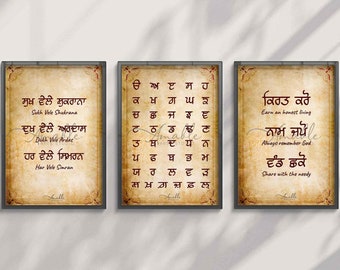 ਸੁਖ ਵੇਲੇ ਸ਼ੁਕਰਾਨਾ
Sukh Vele Shukrana
ਦੁਖ ਵੇਲੇ ਅਰਦਾਸ
Dukh Vele Ardas
ਹਰ ਵੇਲੇ ਸਿਮਰਨ
Har Vele Simran
ੳ ਅ ੲ ਸ ਹ
ਕ ਖ ਗ ਘ ਙ
ਚ ਛ ਜ ਝ ਞ
ਟ ਠ ਡ ਢ ਣ
ਤ ਥ ਦ ਧ ਨ
ਪ ਫ ਬ ਭ ਮ
ਯ ਰ ਲ ਵ ੜ
ਸ਼ ਖ਼ ਗ਼ ਜ਼ ਫ਼ ਲ਼
ਕਿਰਤ ਕਰੋ
Earn an honest living
ਨਾਮ ਜਪੋ
Always remember God
ਵੰਡ ਛਕੋ
Share with the needy